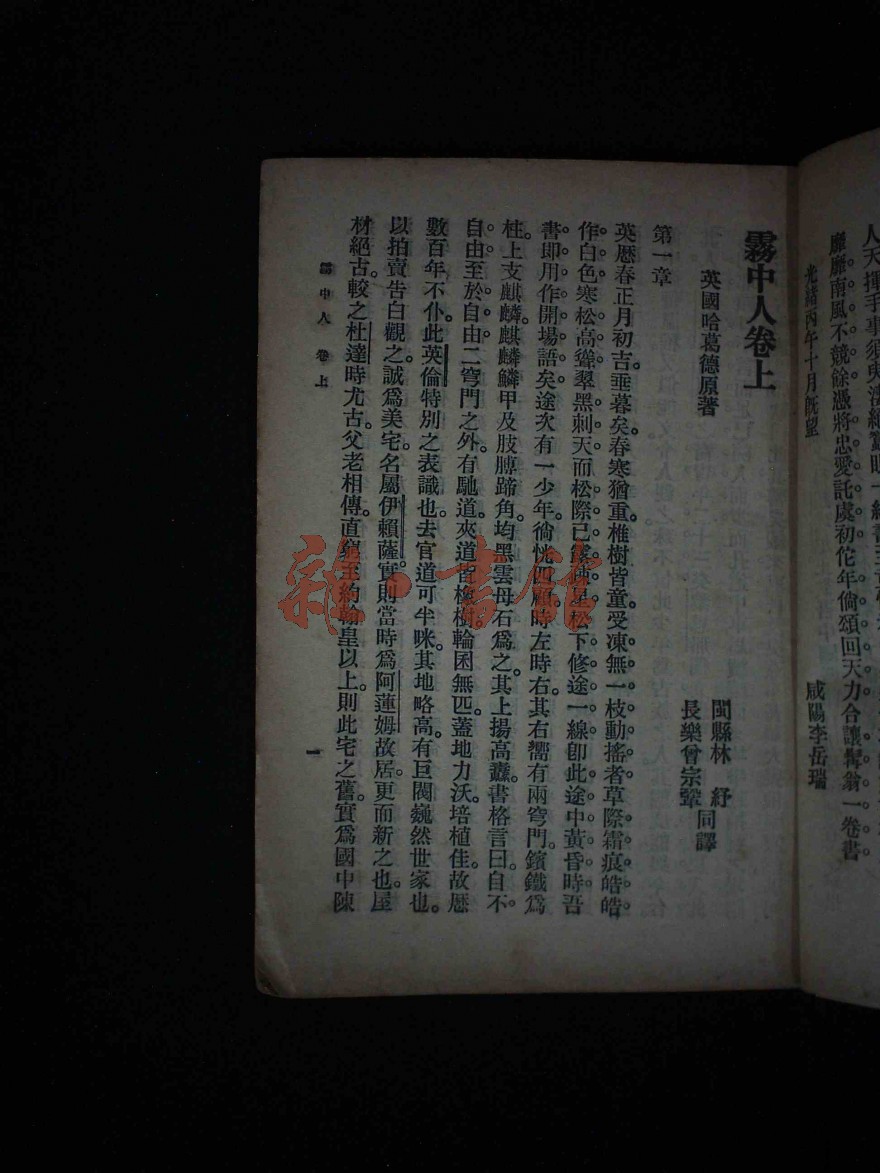 人天揮手事須臾
靡靡南風不競餘憑將忠愛託虞初佗年倘頌回天力合讓畏翁一卷書
光緒丙午十月既望
咸陽李岳瑞
霧中人卷上
英國哈葛德原著
閩縣林紓
長樂曾宗鞏
同譯
第一章
英歷春正月初吉垂暮矣春寒猶重椎樹皆童受凍無一枝動搖者草際霜痕皓皓
作白色寒松高聳翠黑刺天而松際已露純星松下修途一線卽此途中黃昏時吾
書卽用作開場語矣途次有一少年徜恍四顧時左時右其右嚮有兩穹門鑌鐵爲
柱上支麒麟麒麟鱗甲及肢膊蹄角均黑雲母石爲之其上揚高纛書格言曰自不
自由至於自由二穹門之外有馳道夾道皆橡樹輪囷無匹蓋地力沃培植佳故歷
數百年不仆此英倫特別之表識也去官道可半咪其地略高有巨閥巍然世家也
以拍賣告白觀之誠爲美宅名屬伊賴薩實則當時爲阿蓮姆故居更而新之也屋
材絕古較之杜達時尤古父老相傳直窮至約翰皇以上則此宅之舊實爲國中陳
霧中人 卷上
一
雜·書館